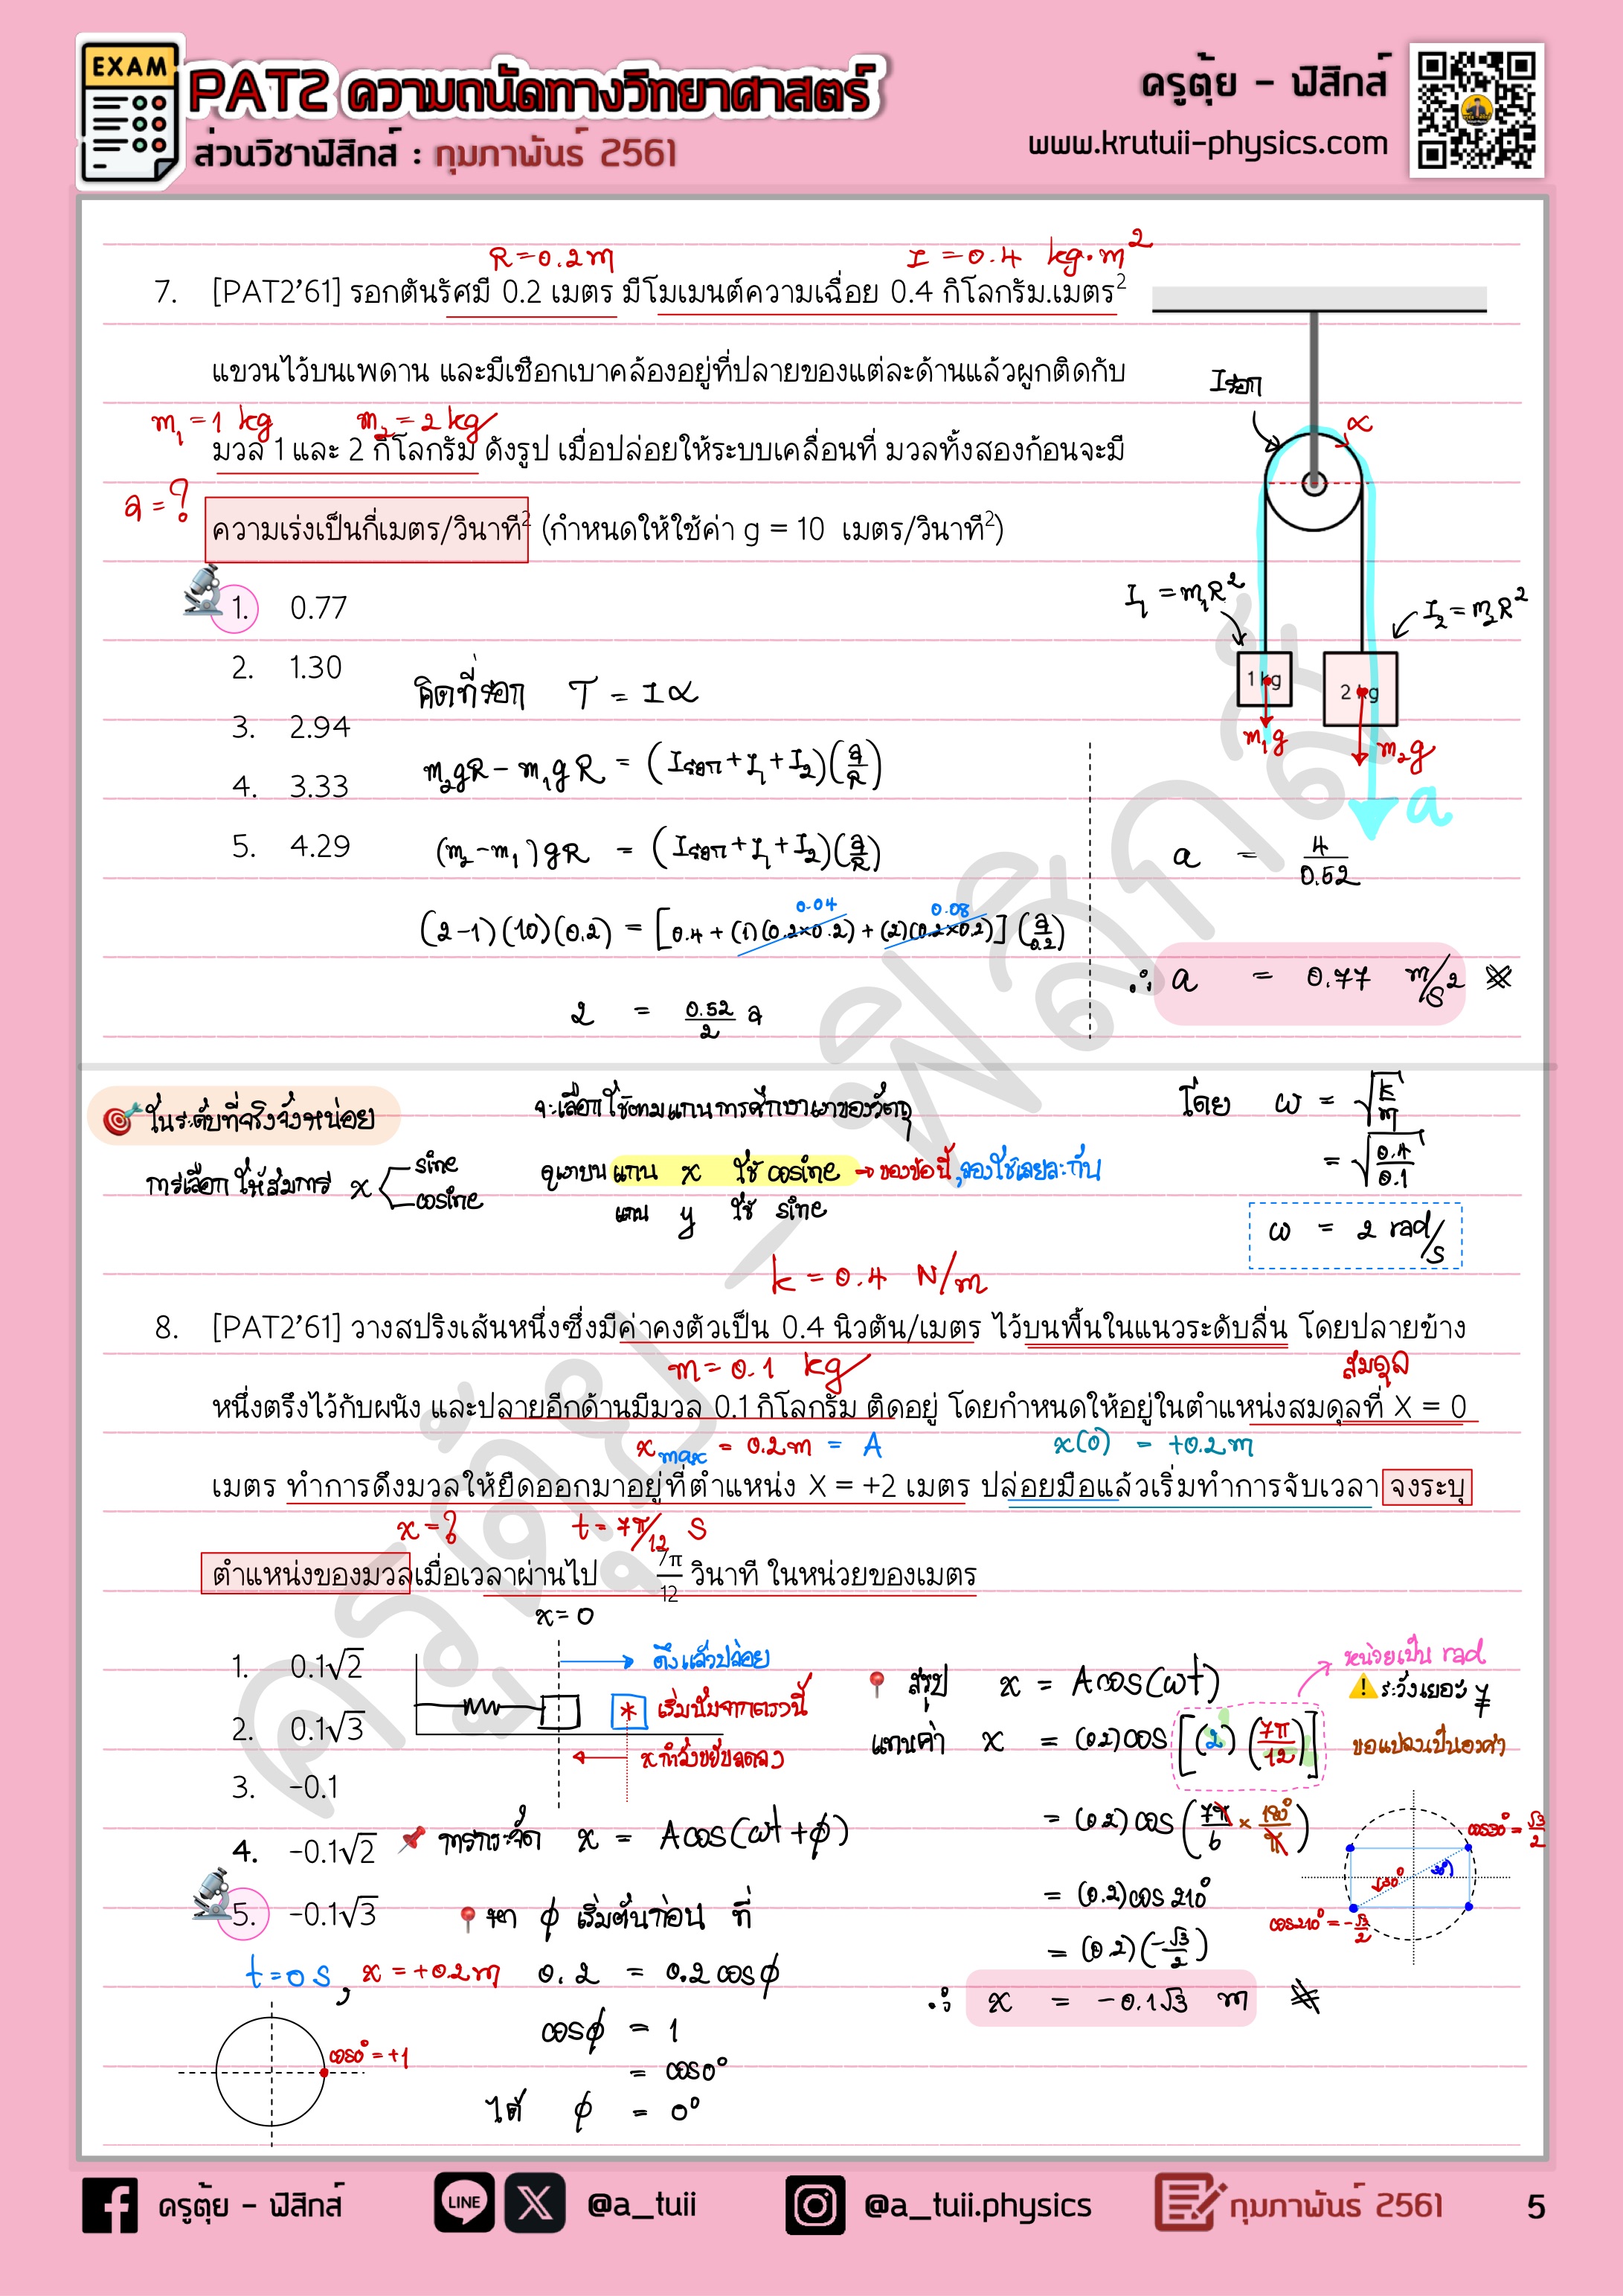 EXAM
PAT2 ความถนัดทางวิทยาศาสตร์
ส่วนวิชาฟิสิกส์ : กุมภาพันธ์ 2561
ครูตุ้ย – ฟิสิกส์
www.krutuii-physics.com
R = 0.2 m
I = 0.4 kg·m²
7. [PAT2'61] รอกตันรัศมี 0.2 เมตร มีโมเมนต์ความเฉื่อย 0.4 กิโลกรัม.เมตร²
แขวนไว้บนเพดาน และมีเชือกเบาคล้องอยู่ที่ปลายของแต่ละด้านแล้วผูกติดกับ
m₁ = 1 kg m₂ = 2 kg
มวล 1 และ 2 กิโลกรัม ดังรูป เมื่อปล่อยให้ระบบเคลื่อนที่ มวลทั้งสองก้อนจะมี
a = ?
ความเร่งเป็นกี่เมตร/วินาที² (กำหนดให้ใช้ค่า g = 10 เมตร/วินาที²)
1. 0.77
2. 1.30
3. 2.94
4. 3.33
5. 4.29
Iรอก
α
I₁ = m₁R²
I₂ = m₂R²
1 kg
2 kg
m₁g
m₂g
a
คิดที่รอก T = Iα
m₂gR – m₁gR = (Iรอก + I₁ + I₂)(a/R)
(m₂ – m₁)gR = (Iรอก + I₁ + I₂)(a/R)
0.04 0.08
(2–1)(10)(0.2) = [0.4 + (1)(0.2×0.2) + (2)(0.2×0.2)](a/0.2)
2 = 0.52/2 a
a = 4/0.52
∴ a = 0.77 m/s²
ในระดับที่จริงจังหน่อย
การเลือกให้สมการ x sine
cosine
จะเลือกใช้ตามแกนการศึกษาเงาของวัตถุ
ดูเงาบน แกน x ใช้ cosine → ของข้อนี้ ,ลองใช้เลยละกัน
แกน y ใช้ sine
โดย ω = √(k/m)
= √(0.4/0.1)
ω = 2 rad/s
k = 0.4 N/m
8. [PAT2'61] วางสปริงเส้นหนึ่งซึ่งมีค่าคงตัวเป็น 0.4 นิวตัน/เมตร ไว้บนพื้นในแนวระดับลื่น โดยปลายข้าง
m = 0.1 kg
สมดุล
หนึ่งตรึงไว้กับผนัง และปลายอีกด้านมีมวล 0.1 กิโลกรัม ติดอยู่ โดยกำหนดให้อยู่ในตำแหน่งสมดุลที่ X = 0
xmax = 0.2 m = A
x(0) = +0.2 m
เมตร ทำการดึงมวลให้ยืดออกมาอยู่ที่ตำแหน่ง X = +2 เมตร ปล่อยมือแล้วเริ่มทำการจับเวลา จงระบุ
x = ? t = 7π/12 s
ตำแหน่งของมวลเมื่อเวลาผ่านไป 7π/12 วินาที ในหน่วยของเมตร
x = 0
1. 0.1√2
2. 0.1√3
3. –0.1
4. –0.1√2
5. –0.1√3
ดึงแล้วปล่อย
* เริ่มนับจากตรงนี้
x กำลังขยับลดลง
การกระจัด x = Acos(ωt + φ)
หา φ เริ่มต้นก่อน ที่
t = 0 s , x = +0.2 m 0.2 = 0.2 cosφ
cosφ = 1
= cos0°
ได้ φ = 0°
cos0° = +1
สรุป x = Acos(ωt)
หน่วยเป็น rad
ระวังเยอะๆ
แทนค่า x = (0.2)cos[(2)(7π/12)]
ขอแปลงเป็นองศา
= (0.2)cos(7π/6 × 180°/π)
= (0.2)cos 210°
= (0.2)(–√3/2)
∴ x = –0.1√3 m
cos30° = √3/2
30°
30°
cos210° = –√3/2
ครูตุ้ย – ฟิสิกส์
LINE
@a_tuii
@a_tuii.physics
กุมภาพันธ์ 2561
5
ครูตุ้ย – ฟิสิกส์